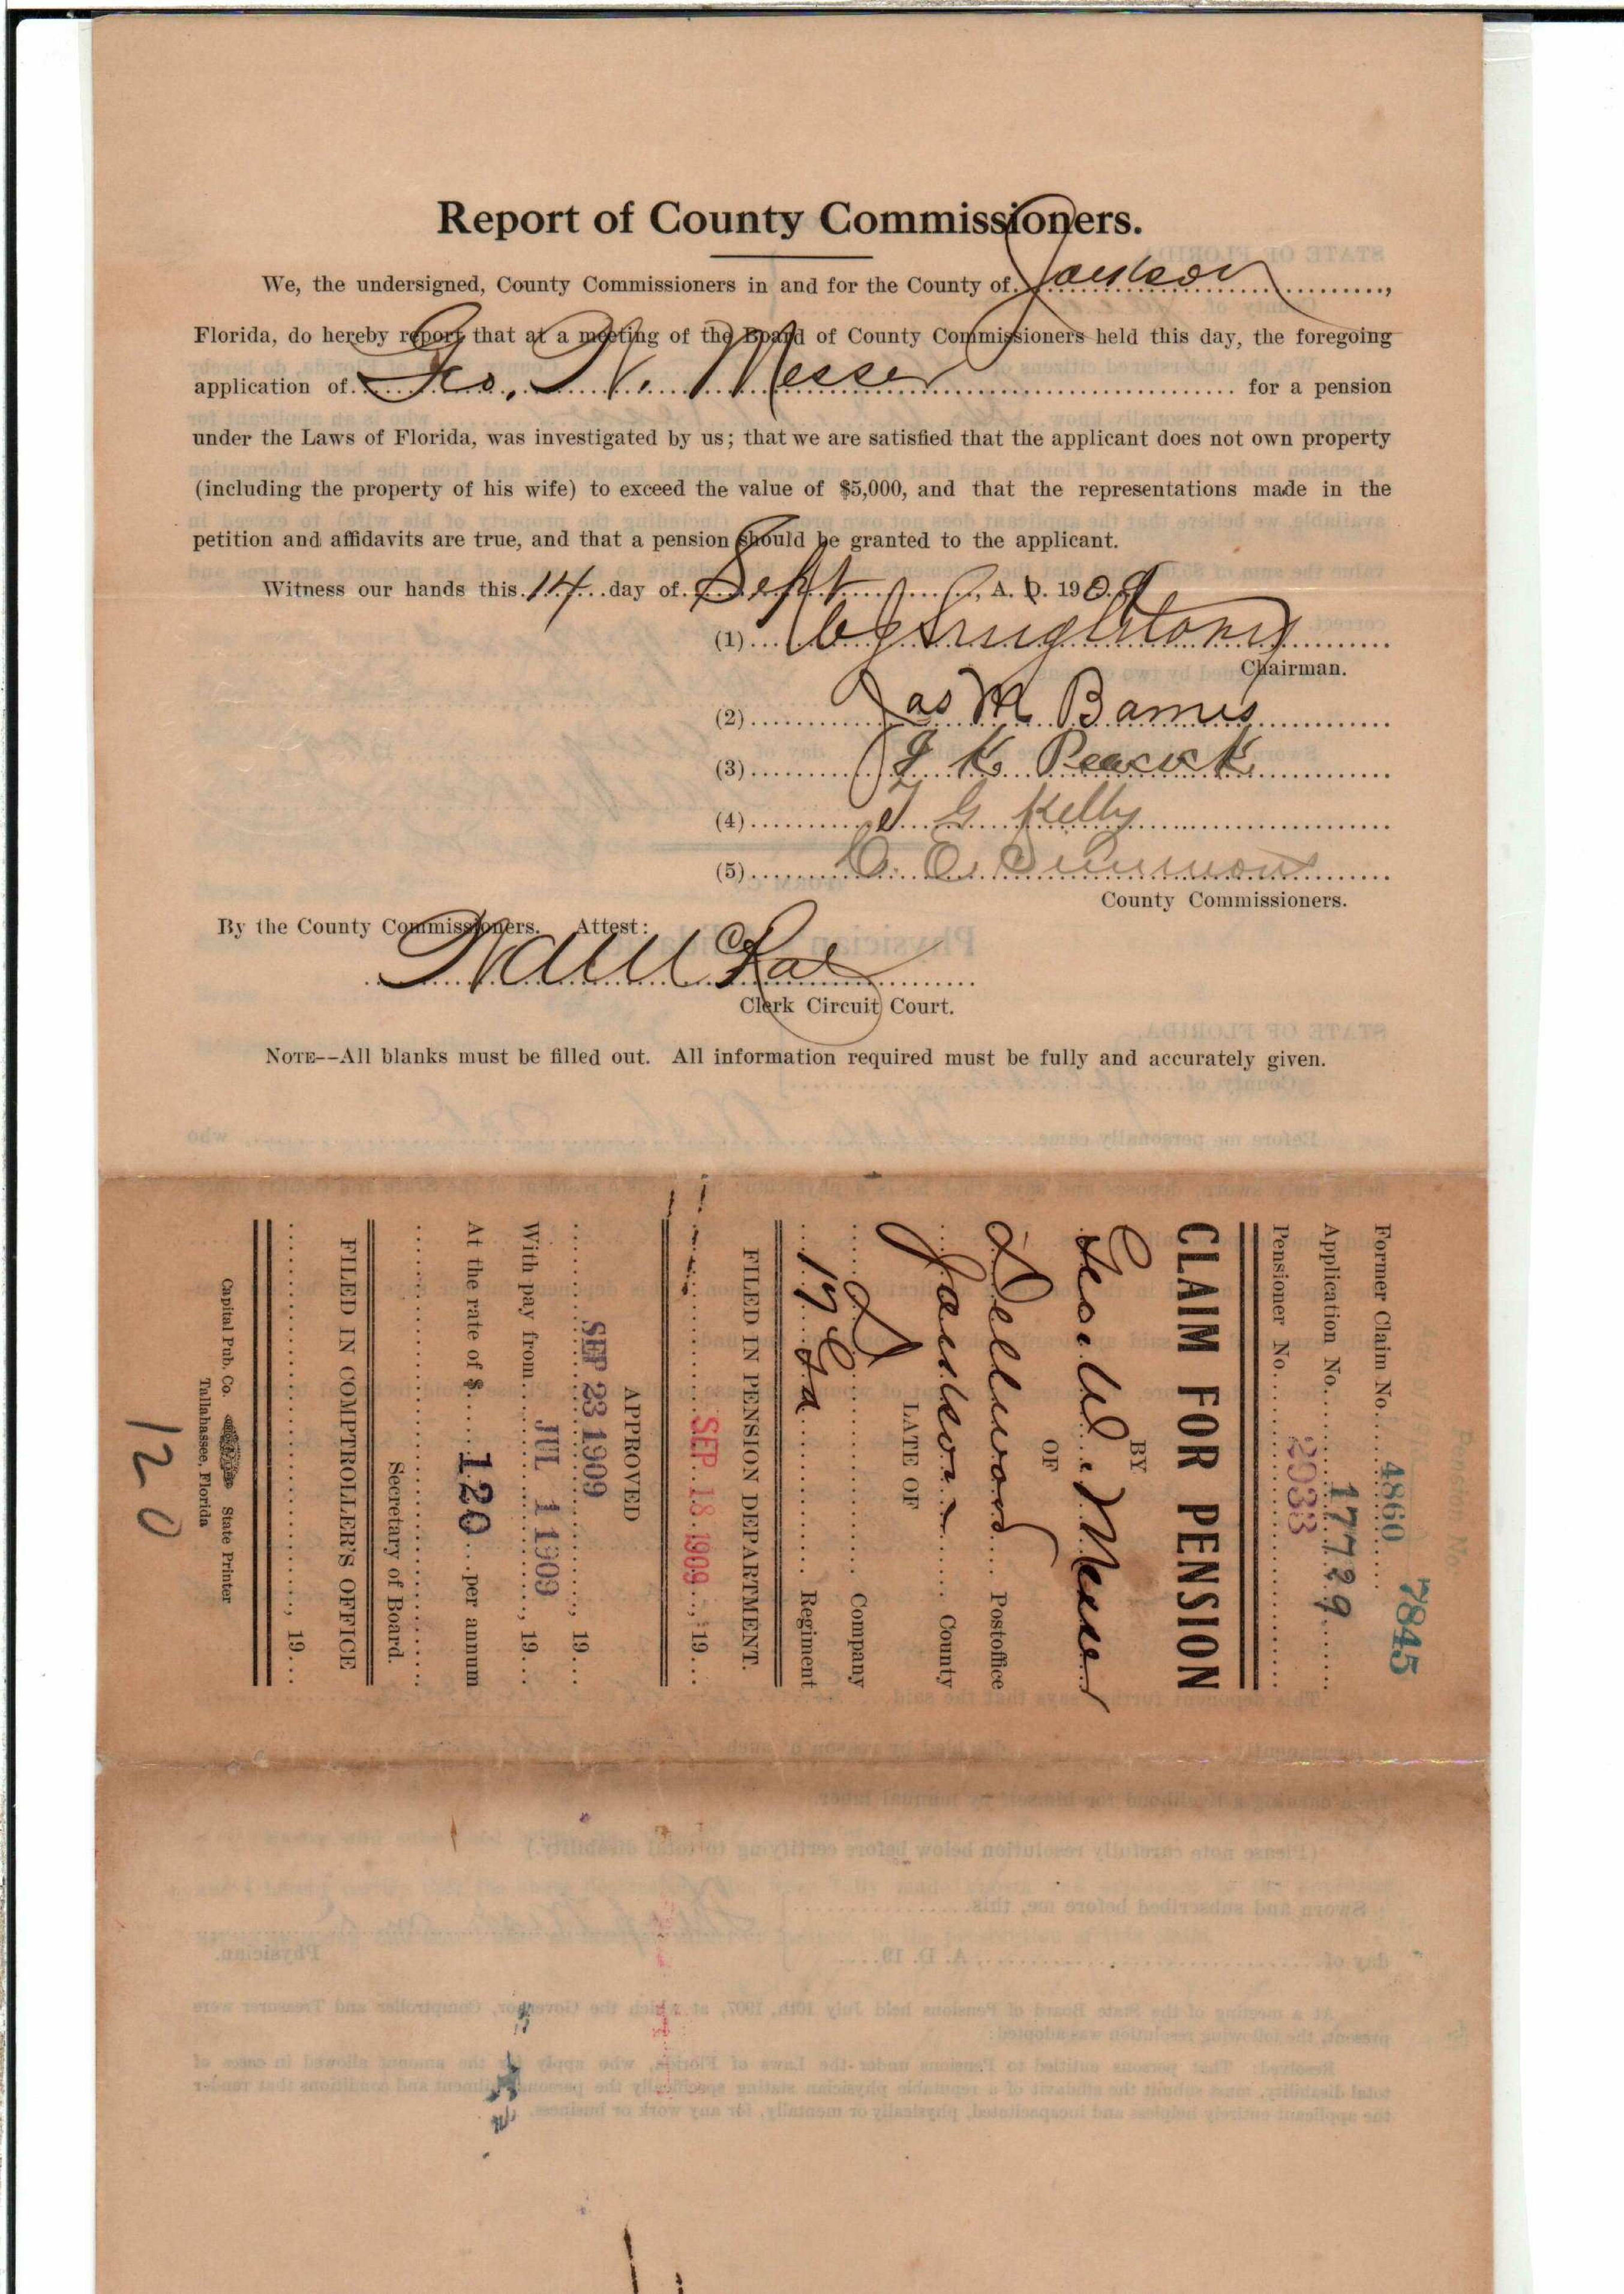 Report of County Commissioners.
We, the undersigned, County Commissioners in and for the County of Jackson,
Florida, do hereby report that at a meeting of the Board of County Commissioners held this day, the foregoing
application of Geo. W. Messer for a pension
under the Laws of Florida, was investigated by us; that we are satisfied that the applicant does not own property
(including the property of his wife) to exceed the value of $5,000, and that the representations made in the
petition and affidavits are true, and that a pension should be granted to the applicant.
Witness our hands this 14 day of Sept, A. D. 1909
(1)
Chairman.
(2) Jas M Barnes
(3) J K Peacock
(4) J G Kelly
(5) C. E. Simmons
County Commissioners.
By the County Commissioners. Attest:
Clerk Circuit Court.
NOTE--All blanks must be filled out. All information required must be fully and accurately given.
7845
Former Claim No. 4860
Application No. 17729
Pensioner No. 2033
CLAIM FOR PENSION
BY
Geo. W. Messer
OF
Dellwood Postoffice
Jackson County
LATE OF
D Company
17 Ga Regiment
FILED IN PENSION DEPARTMENT.
SEP 18 1909, 19
APPROVED
SEP 23 1909, 19
With pay from JUL 1 1909, 19
At the rate of $ 120 per annum
Secretary of Board.
FILED IN COMPTROLLER'S OFFICE
, 19
Capital Pub. Co. State Printer
Tallahassee, Florida
120